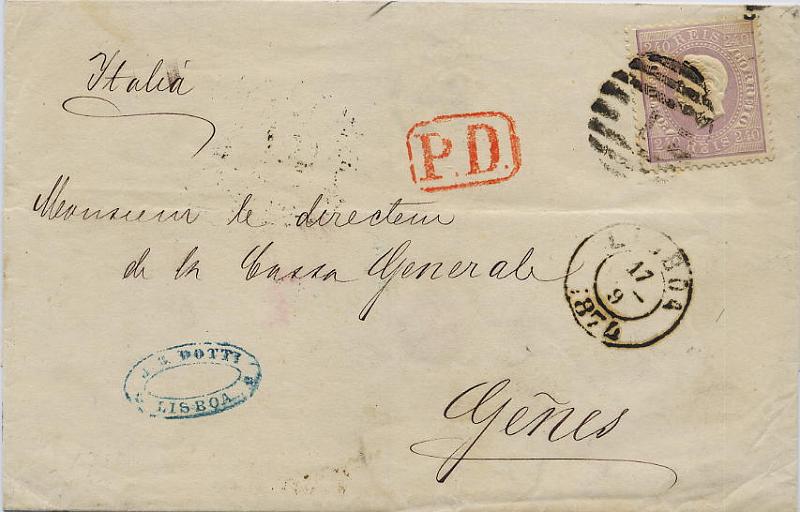 Italiá
240 REIS 240
CORREIO
240 REIS 240
P.D.
Monsieur le directeur
de la Cassa Generale
LISBOA
17
9
Gênes
DOTTI
LISBOA